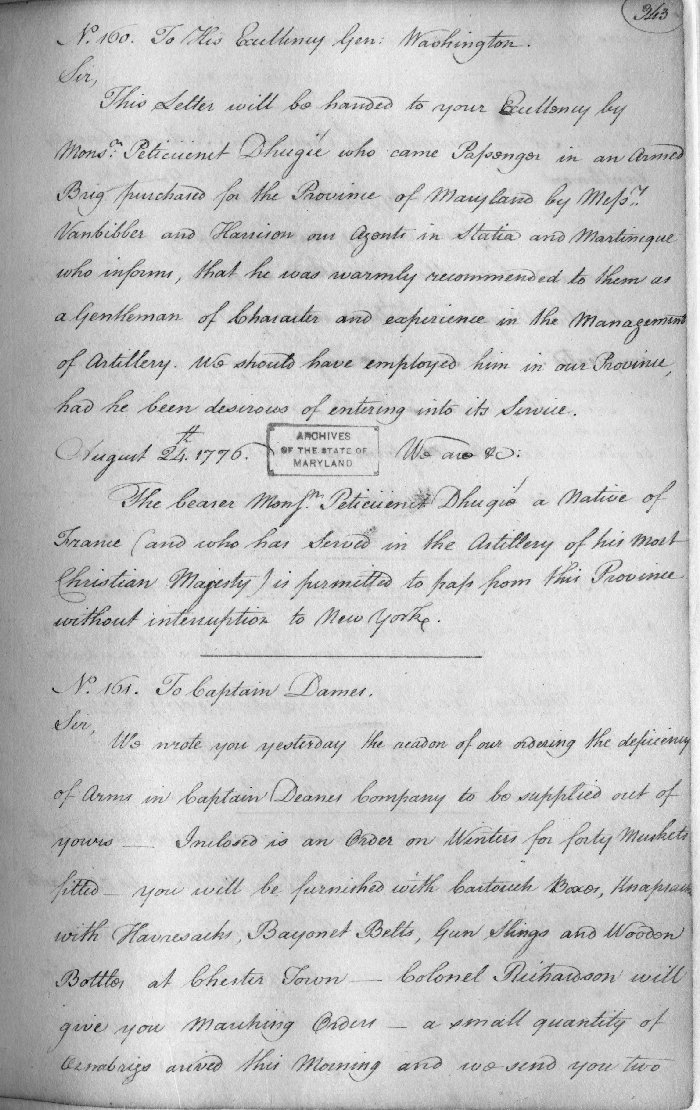 343
No. 160. To His Excellency Gen: Washington.
Sir,
This Letter will be handed to your Excellency by
Monsr. Peticuenit Dhugié who came Passenger in an Armed
Brig purchased for the Province of Maryland by Messrs.
Vanbibber and Harrison our Agents in Statia and Martineque
who informs, that he was warmly recommended to them as
a Gentleman of Character and experience in the Management
of Artillery. We should have employed him in our Province,
had he been desirous of entering into its Service.
August 24th. 1776. We are &c:
ARCHIVES
OF THE STATE OF
MARYLAND
The bearer Monsr. Peticuenit Dhugié a Native of
France (and who has Served in the Artillery of his Most
Christian Majesty) is permitted to pass from this Province
without interruption to New York.
No. 161. To Captain Dames.
Sir,
We wrote you yesterday the reason of our ordering the deficiency
of Arms in Captain Deanes Company to be supplied out of
yours — Inclosed is an Order on Winters for forty Muskets
fitted — you will be furnished with Cartouch Boxes, Knapsacks
with Havresacks, Bayonet Belts, Gun Slings and Wooden
Bottles at Chester Town — Colonel Richardson will
give you Marching Orders — a small quantity of
Oznabrigs arived this Morning and we send you two